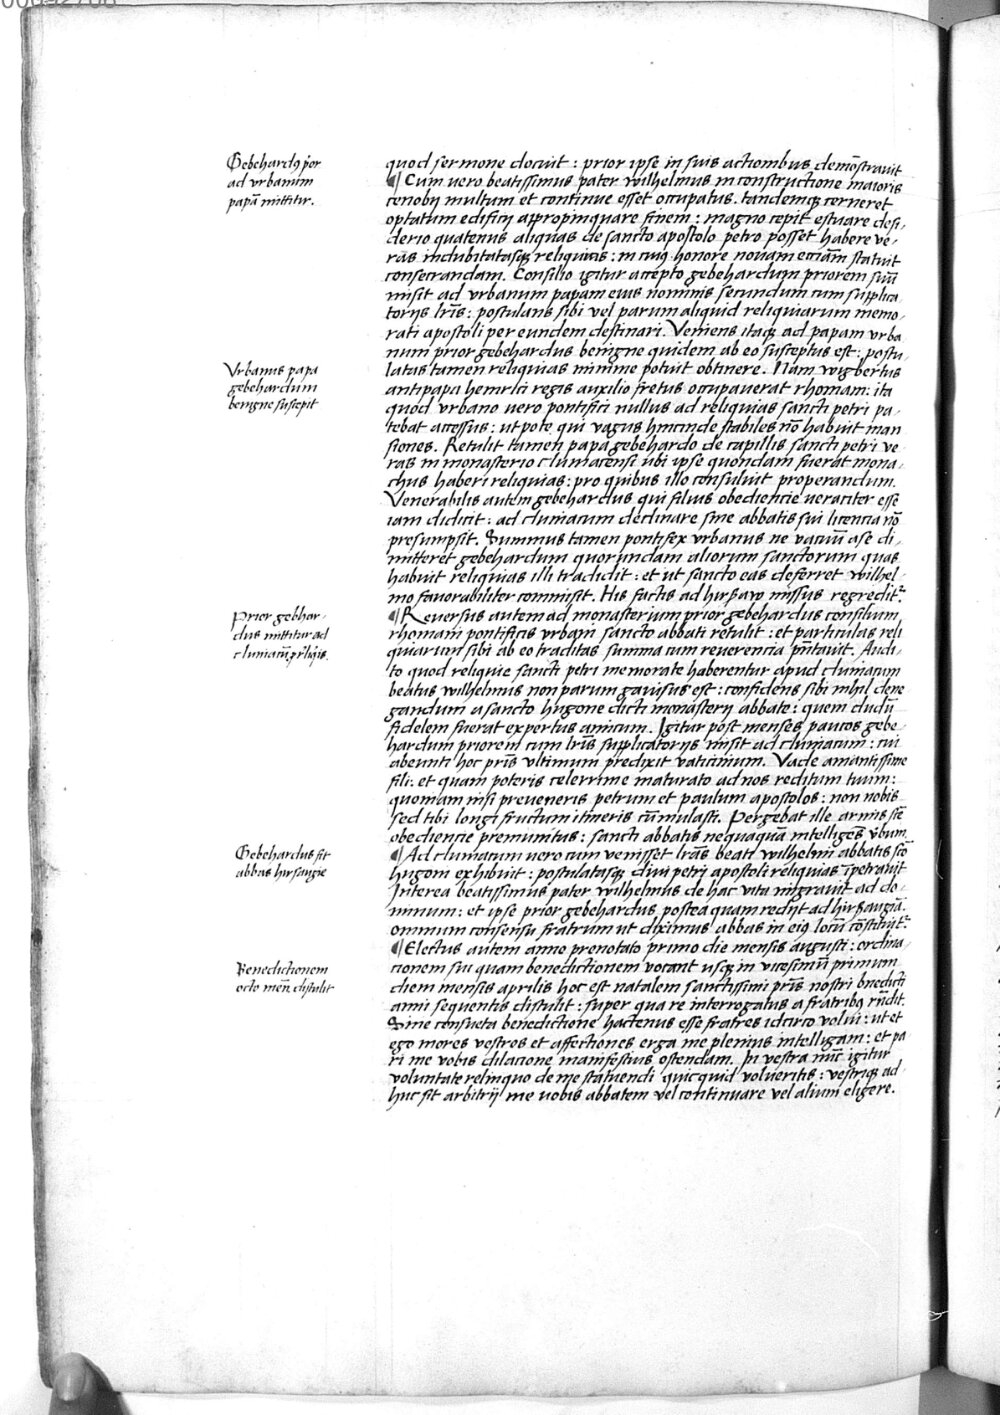 Gebehardꝰ p̄or
ad vrbanum
papā mittitur.
quod sermone docuit : prior ipse in suis actionibus demōstrauit
¶ Cum uero beatissimus pater wilhelmus in constructione maioris
cenobij multum et continue esset occupatus. tandemqꝫ cerneret
optatum edificij appropinquare finem : magno cepit estuare desi-
derio quatenus aliquas de sancto apostolo petro posset habere ve-
ras indubitatasqꝫ reliquias : in cuiꝰ honore nouam ecciām statuit
consecrandam. Consilio igitur accepto gebehardum priorem suū
misit ad vrbanum papam eius nominis secundum cum supplica
torijs lr̄is : postulans sibi vel parum aliquid reliquiarum memo-
rati apostoli per eundem destinari. Veniens itaqꝫ ad papam vrba
num prior gebehardus benigne quidem ab eo susceptus est : postu-
latas tamen reliquias minime potuit obtinere. Nam wigbertus
antipapa henrici regis auxilio fretus occupauerat rhomam: ita
quod vrbano uero pontifici nullus ad reliquias sancti petri pa-
tebat accessus : utpote qui vagus hincinde stabiles nō habuit man
siones. Retulit tamen papa gebehardo de capillis sancti petri ve-
ras in monasterio cluniacensi ubi ipse quondam fuerat mona-
chus haberi reliquias : pro quibus illo consuluit properandum.
Venerabilis autem gebehardus qui filius obediencie ueraciter esse
iam didicit : ad cluniacum declinare sine abbatis sui licencia nō
presumpsit. Summus tamen pontifex vrbanus ne vacuū a se di-
mitteret gebehardum quorundam aliorum sanctorum quas
habuit reliquias illi tradidit : et ut sancto eas deferret wilhel-
mo fauorabiliter commisit. His factis ad hirsaw missus regredit᷑.
¶ Reuersus autem ad monasterium prior gebehardus consilium
rhomani pontificis vrbani sancto abbati retulit : et particulas reli
quiarum sibi ab eo traditas summa cum reuerencia pn̄tauit. Audi-
to quod reliquie sancti petri memorate haberentur apud cluniacum
beatus wilhelmus non parum gauisus est : confidens sibi nihil dene
gandum a sancto hugone dicti monasterij abbate : quem dudū
fidelem fuerat expertus amicum. Igitur post menses paucos gebe-
hardum priorem cum lr̄is supplicatorijs misit ad cluniacum : cui
abeunti hoc pr̄is vltimum predixit vaticinium. Vade amantissime
fili : et quam poteris celerrime maturato ad nos reditum tuum :
quoniam nisi preueneris petrum et paulum apostolos : non nobis
sed tibi longi fructum itineris cūmulasti. Pergebat ille armis scē
obediencie premunitus : sancti abbatis nequaquā intelligēs v̄bum.
¶ Ad cluniacum uero cum venisset lr̄as beati wilhelmi abbatis scō
hugoni exhibuit : postulatasqꝫ diui petri apostoli reliquias īpetrauit
Interea beatissimus pater wilhelmus de hac vita migrauit ad do-
minum : et ipse prior gebehardus postea quam redijt ad hirßaugiā.
omnium consensu fratrum ut diximus abbas in eiꝰ locū cōstituit᷑.
¶ Electus autem anno prenotato primo die mensis augusti : ordina-
cionem sui quam benedictionem vocant usqꝫ in vicesimū primum
diem mensis aprilis hoc est natalem sanctissimi pr̄is nostri bn̄edicti
anni sequentis distulit : super qua re interrogatus a fratribꝰ rn̄dit.
Sine consueta benedictione hactenus esse fratres idcirco volui : ut et
ego mores vestros et affectiones erga me plenius intelligam : et pa
ri me vobis dilacione manifestius ostendam. In vestra nūc igitur
voluntate relinquo de me statuendi quicquid volueritis : vestriqꝫ ad
huc sit arbitrij me uobis abbatem vel continuare vel alium eligere.
Vrbanus papa
gebehardum
benigne suscepit
Prior gebhar-
dus mittitur ad
cluniacū p̱ reliqijs.
Gebehardus fit
abbas hirsaugie
Benedictionem
octo men̄ distulit